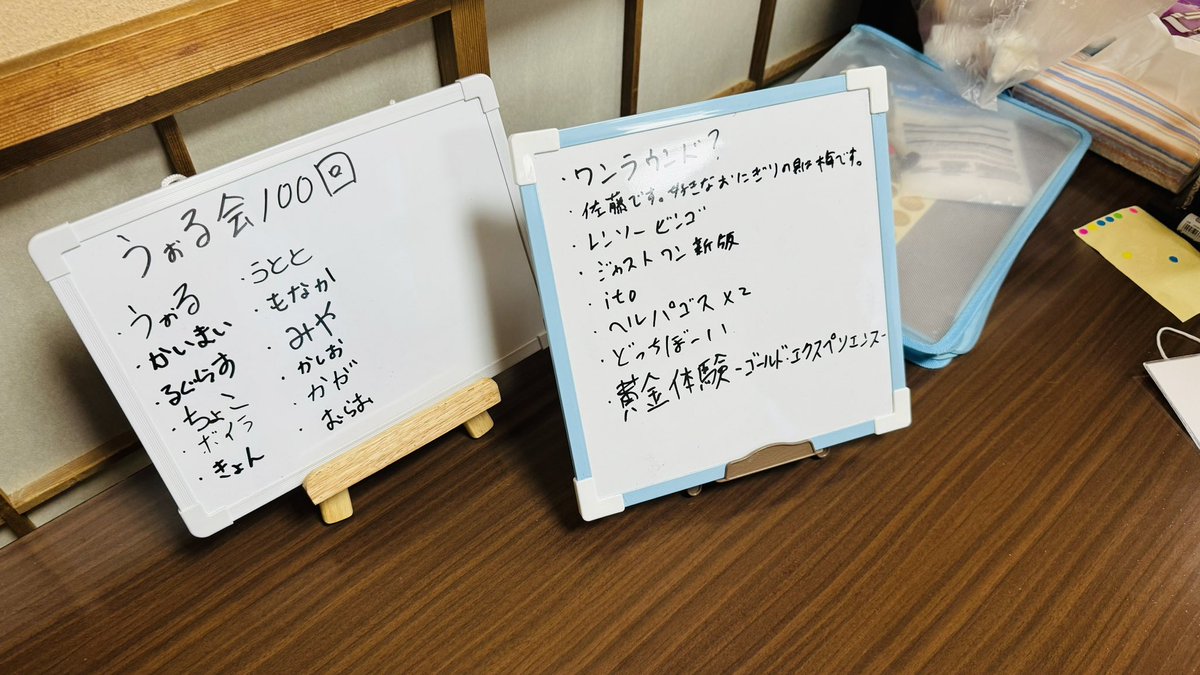 うぉる会100回
・うぉる
・かいまい
・るぐらす
・ちょこ
・ボイラ
・きょん
・うとと
・もなか
・みや
・かしお
・かが
・むらお
・ワンラウンド?
・佐藤です。好きなおにぎりの具は梅です。
・レンソービンゴ
・ジャストワン新版
・ito
・ヘルパゴス×2
・どっちぼーい
・黄金体験-ゴールド・エクスペリエンス-